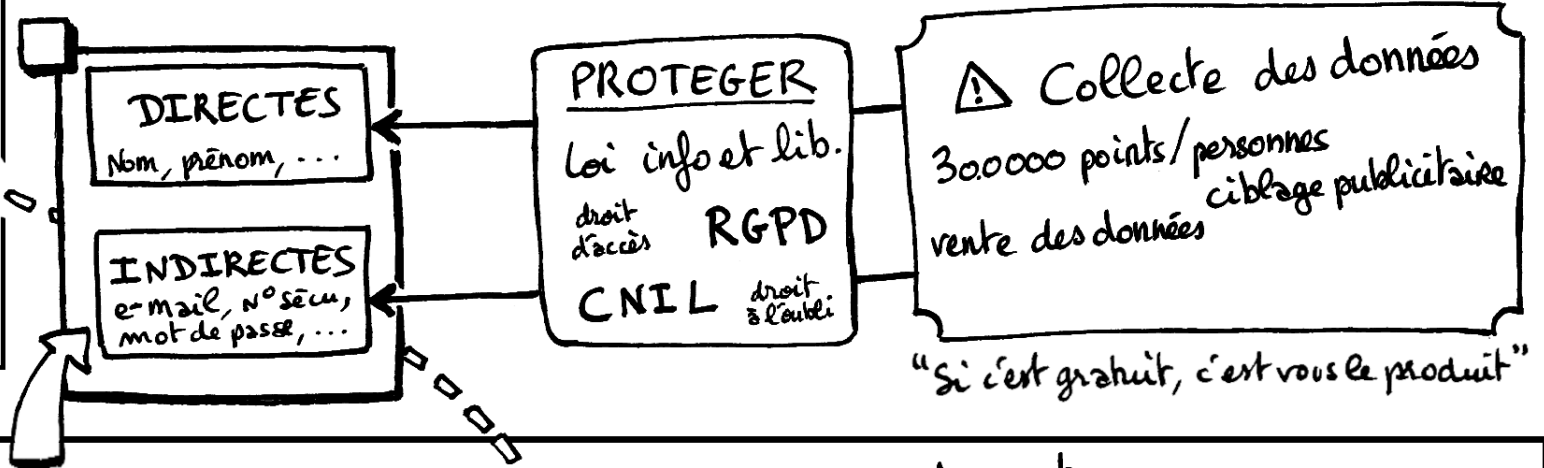 DIRECTES
Nom, prénom, ...
INDIRECTES
e-mail, N° sécu,
mot de passe, ...
PROTEGER
Loi info et lib.
droit
d'accès
RGPD
CNIL
droit
à l'oubli
⚠ Collecte des données
300000 points/personnes
ciblage publicitaire
vente des données
"Si c'est gratuit, c'est vous le produit"